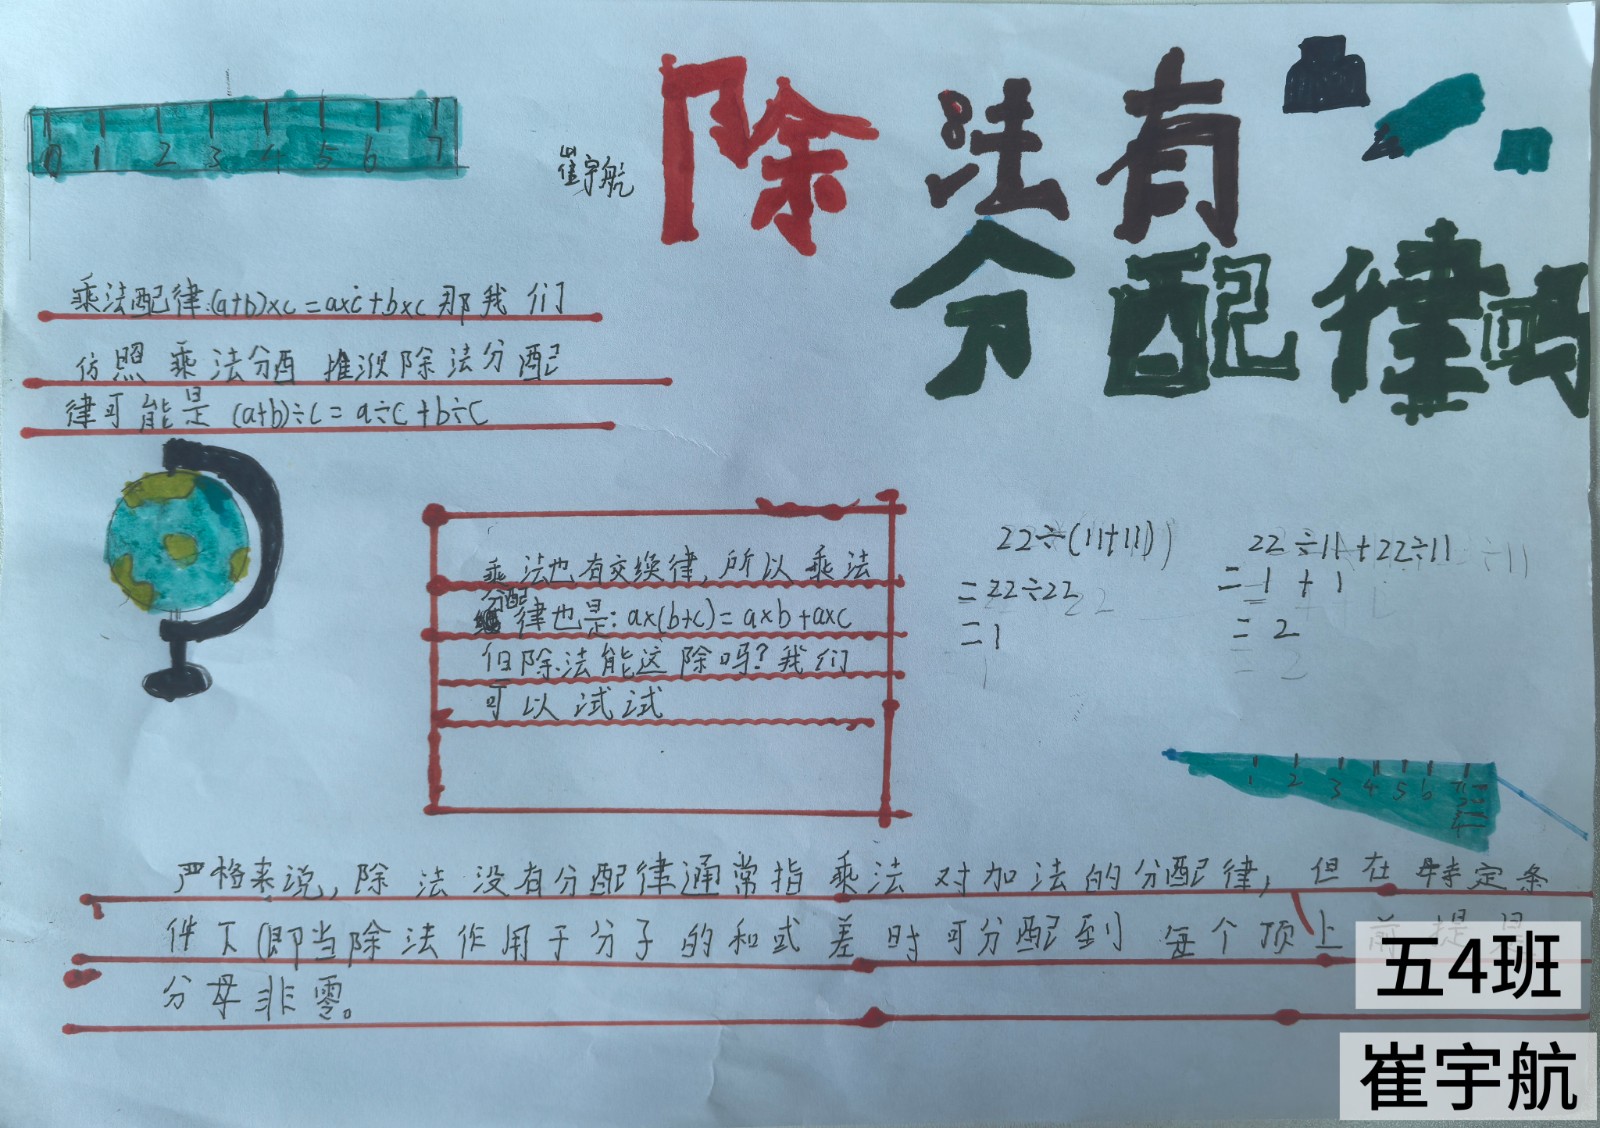 除法有
分配律吗
崔宇航
0 1 2 3 4 5 6 7
乘法配律:(a+b)×c=a×c+b×c 那我们
仿照乘法分配推测除法分配
律可能是 (a+b)÷c=a÷c+b÷c
乘法也有交换律,所以乘法
分配
律也是:a×(b+c)=a×b+a×c
但除法能这除吗?我们
可以试试
22÷(11+11)
=22÷22
=1
22÷11+22÷11
=1+1
=2
1 2 3 4 5 6 7
严格来说,除法没有分配律通常指乘法对加法的分配律,但在特定条
件下(即当除法作用于分子的和或差时可分配到每个项上前提是
分母非零。
五4班
崔宇航